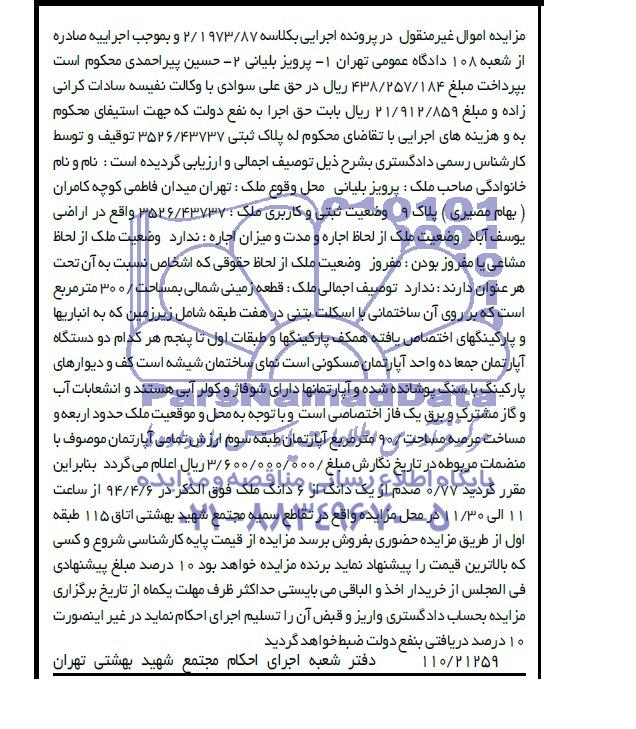 مزایده اموال غیرمنقول در پرونده اجرایی بکلاسه ۲/۱۹۷۳/۸۷ و بموجب اجراییه صادره
از شعبه ۱۰۸ دادگاه عمومی تهران ۱- پرویز بلیانی ۲- حسین پیراحمدی محکوم است
بپرداخت مبلغ ۴۳۸/۲۵۷/۱۸۴ ریال در حق علی سوادی با وکالت نفیسه سادات کرانی
زاده و مبلغ ۲۱/۹۱۲/۸۵۹ ریال بابت حق اجرا به نفع دولت که جهت استیفای محکوم
به و هزینه های اجرایی با تقاضای محکوم له پلاک ثبتی ۳۵۲۶/۴۳۷۳۷ توقیف و توسط
کارشناس رسمی دادگستری بشرح ذیل توصیف اجمالی و ارزیابی گردیده است : نام و نام
خانوادگی صاحب ملک : پرویز بلیانی محل وقوع ملک : تهران میدان فاطمی کوچه کامران
( بهام مصیری ) پلاک ۹ وضعیت ثبتی و کاربری ملک : ۳۵۲۶/۴۳۷۳۷ واقع در اراضی
یوسف آباد وضعیت ملک از لحاظ اجاره و مدت و میزان اجاره : ندارد وضعیت ملک از لحاظ
مشاعی یا مفروز بودن : مفروز وضعیت ملک از لحاظ حقوقی که اشخاص نسبت به آن تحت
هر عنوان دارند : ندارد توصیف اجمالی ملک : قطعه زمینی شمالی بمساحت ۳۰۰/ مترمربع
است که بر روی آن ساختمانی با اسکلت بتنی در هفت طبقه شامل زیرزمین که به انباریها
و پارکینگهای اختصاص یافته همکف پارکینگها و طبقات اول تا پنجم هر کدام دو دستگاه
آپارتمان جمعا ده واحد آپارتمان مسکونی است نمای ساختمان شیشه است کف و دیوارهای
پارکینگ با سنگ پوشانده شده و آپارتمانها دارای شوفاژ و کولر آبی هستند و انشعابات آب
و گاز مشترک و برق یک فاز اختصاصی است و با توجه به محل و موقعیت ملک حدود اربعه و
مساحت عرصه مساحت ۹۰/ مترمربع آپارتمان طبقه سوم ارزش تمامی آپارتمان موصوف با
منضمات مربوطه در تاریخ نگارش مبلغ ۳/۶۰۰/۰۰۰/۰۰۰/ ریال اعلام می گردد بنابراین
مقرر گردید ۰/۷۷ صدم از یک دانگ از ۶ دانگ ملک فوق الذکر در ۹۴/۴/۶ از ساعت
۱۱ الی ۱۱/۳۰ در محل مزایده واقع در تقاطع سمیه مجتمع شهید بهشتی اتاق ۱۱۵ طبقه
اول از طریق مزایده حضوری بفروش برسد مزایده از قیمت پایه کارشناسی شروع و کسی
که بالاترین قیمت را پیشنهاد نماید برنده مزایده خواهد بود ۱۰ درصد مبلغ پیشنهادی
فی المجلس از خریدار اخذ و الباقی می بایستی حداکثر ظرف مهلت یکماه از تاریخ برگزاری
مزایده بحساب دادگستری واریز و قبض آن را تسلیم اجرای احکام نماید در غیر اینصورت
۱۰ درصد دریافتی بنفع دولت ضبط خواهد گردید
۱۱۰/۲۱۲۵۹ دفتر شعبه اجرای احکام مجتمع شهید بهشتی تهران
ParsNamadData
پایگاه اطلاع رسانی مناقصه و مزایده
۰۲۱-۸۸۳۴۹۶۷۰-۵